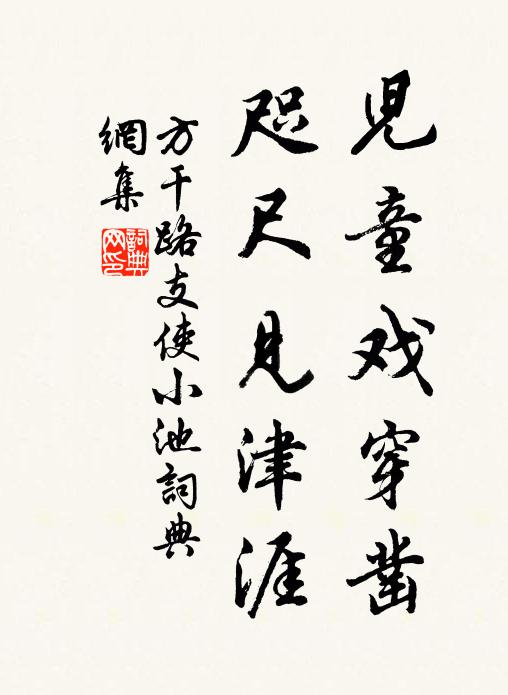 兒童戏穿凿
咫尺見津涯
方干路支使小池詞典
網集
詞典
网印